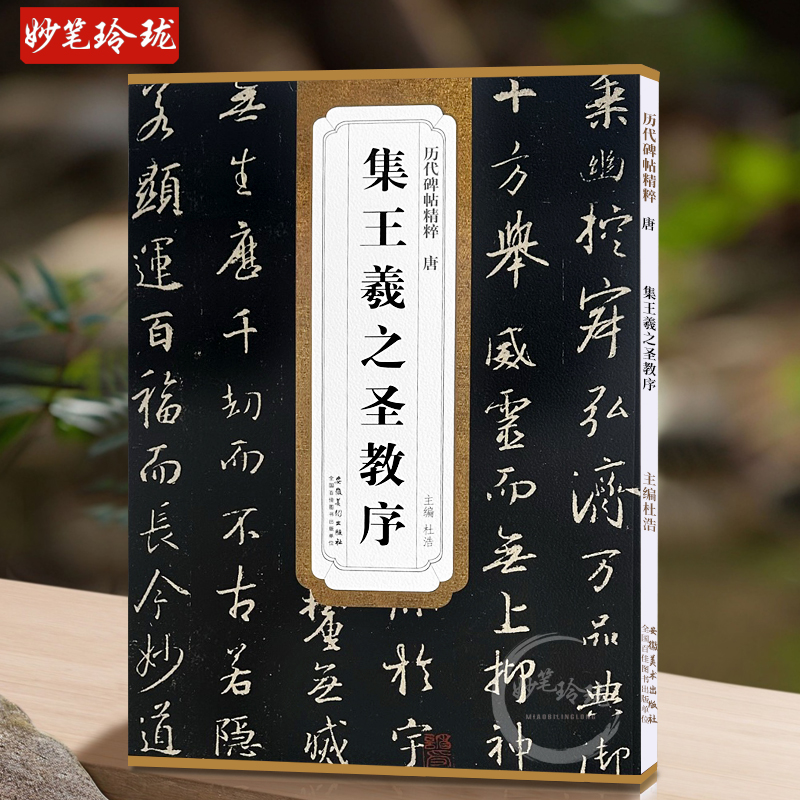 妙笔玲珑
乘幽控寂弘濟万品典御
十方舉威靈而無上抑神
於宇
釐無滅
無生歷千劫而不古若隱
若顯運百福而長今妙道
历代碑帖精粹 唐
集王羲之圣教序
主编 杜浩
安徽美术出版社
全国百佳图书出版单位
历代碑帖精粹 唐
集王羲之圣教序
主编 杜浩
安徽美术出版社
全国百佳图书出版单位
妙笔玲珑
MIAOBILINGLONG